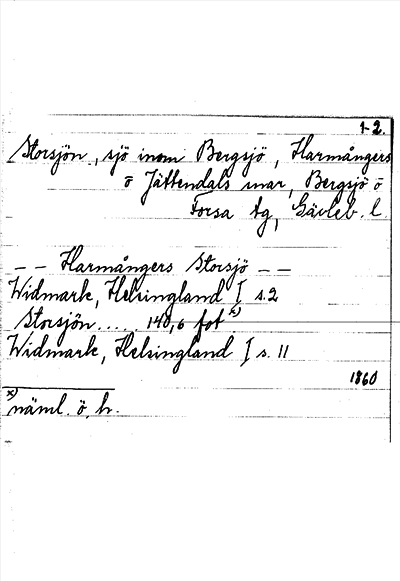 1-2.
Storsjön, sjö inom Bergsjö, Harmångers
o Jättendals snar, Bergsjö o
Forsa tg, Gävleb. l.
– – Harmångers Storsjö – –
Widmark, Helsingland I s. 2
Storsjön..... 148,6 fot x)
Widmark, Helsingland I s. 11
1860
x) näml. ö. h.